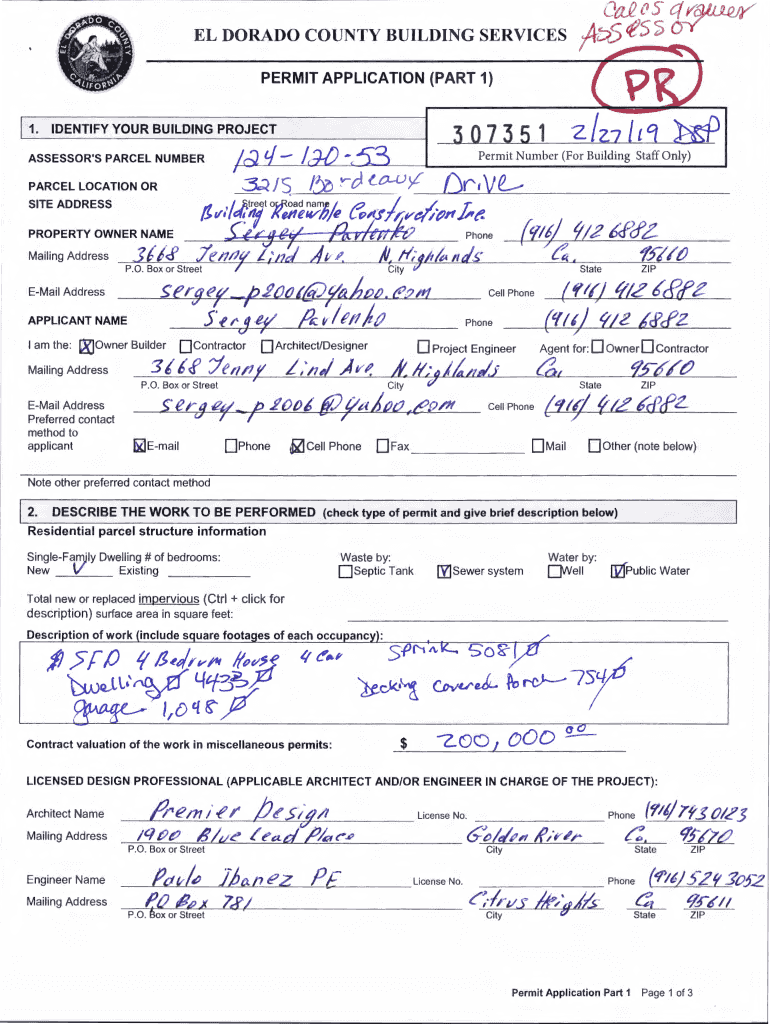 Calcs drawer
ASSESSOR
PR
EL DORADO COUNTY
CALIFORNIA
EL DORADO COUNTY BUILDING SERVICES
PERMIT APPLICATION (PART 1)
1. IDENTIFY YOUR BUILDING PROJECT
307351 2/27/19 DSP
Permit Number (For Building Staff Only)
ASSESSOR'S PARCEL NUMBER 124-120-53
PARCEL LOCATION OR
SITE ADDRESS 3215 Bordeaux Drive
Street or Road name
Building Renewble Construction Inc.
PROPERTY OWNER NAME Sergey Pavlenko Phone (916) 412 6882
Mailing Address 3668 Jenny Lind Ave. N. Highlands Ca. 95660
P.O. Box or Street City State ZIP
E-Mail Address sergey_p2006@yahoo.com Cell Phone (916) 412 6882
APPLICANT NAME Sergey Pavlenko Phone (916) 412 6882
I am the: X Owner Builder Contractor Architect/Designer Project Engineer Agent for: Owner Contractor
Mailing Address 3668 Jenny Lind Ave. N. Highlands Ca 95660
P.O. Box or Street City State ZIP
E-Mail Address sergey_p2006@yahoo.com Cell Phone (916) 412 6882
Preferred contact
method to
applicant X E-mail Phone X Cell Phone Fax Mail Other (note below)
Note other preferred contact method
2. DESCRIBE THE WORK TO BE PERFORMED (check type of permit and give brief description below)
Residential parcel structure information
Single-Family Dwelling # of bedrooms: Waste by: Water by:
New ✓ Existing Septic Tank ✓ Sewer system Well ✓ Public Water
Total new or replaced impervious (Ctrl + click for
description) surface area in square feet:
Description of work (include square footages of each occupancy):
SFD 4 Bedrum House 4 Car Sprink 5081
Dwelling 4433 Decking Covered Porch 754
guage 1,098
Contract valuation of the work in miscellaneous permits: $ 200,000 00
LICENSED DESIGN PROFESSIONAL (APPLICABLE ARCHITECT AND/OR ENGINEER IN CHARGE OF THE PROJECT):
Architect Name Premier Design License No. Phone (916) 743 0123
Mailing Address 1900 Blue Lead Place Golden River Ca. 95670
P.O. Box or Street City State ZIP
Engineer Name Pavlo Ibanez PE License No. Phone (916) 524 3052
Mailing Address PO Box 781 Citrus Heights Ca 95611
P.O. Box or Street City State ZIP
Permit Application Part 1 Page 1 of 3